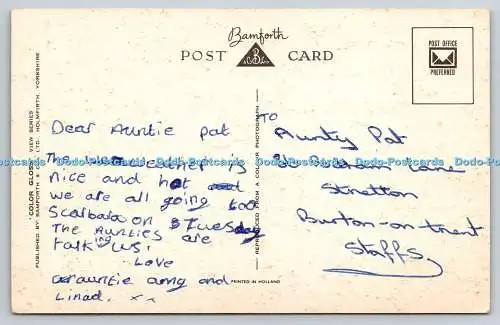 Bamforth
POST CARD
POST OFFICE
PREFERRED
"COLOR GLOSS" VIEW SERIES
PUBLISHED BY BAMFORTH LTD. HOLMFIRTH, YORKSHIRE
REPRODUCED FROM A COLOR PHOTOGRAPH
PRINTED IN HOLLAND
Dear Auntie pat
The weather is
nice and hot and
we are all going too
Scarbara on Tuesday
The Aunties are
talking us.
Love
auntie amg and
Linad. x x
TO
Aunty Pat
Lane
Stretton
Burton-on-trent
Staffs
Dodo-Postcards Dodo-Postcards Dodo-Postcards Dodo-Postcards